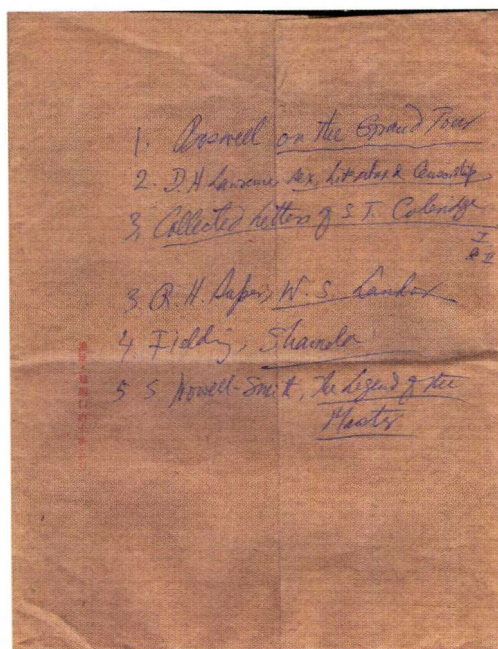 1. Boswell on the Grand Tour
2. D. H. Lawrence Sex, Literature & Censorship
3. Collected Letters of S. T. Coleridge
I
& II
3. R. H. Super, W. S. Landor
4. Fielding, Shamela
5 S Nowell-Smith, The Legend of the
Master